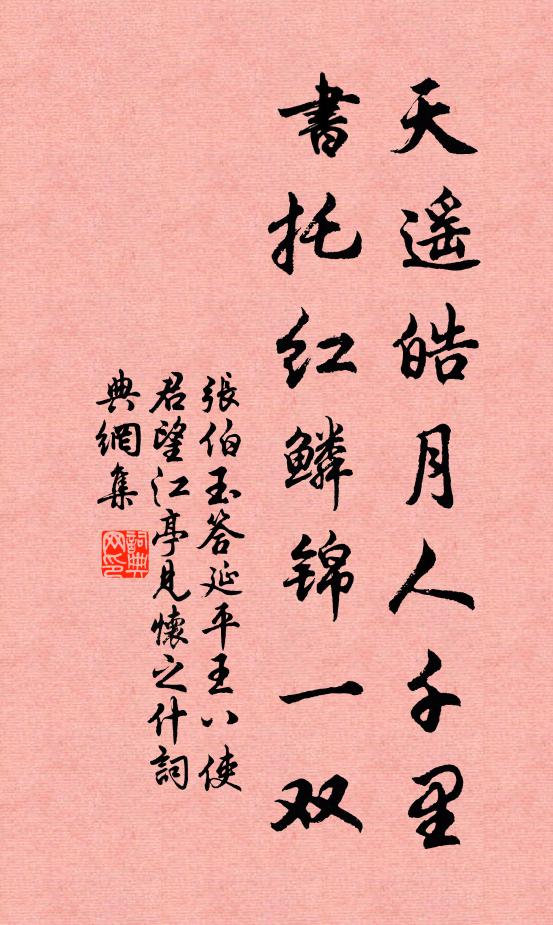 天遥皓月人千里
書托红鳞锦一双
張伯玉答延平王八使
君望江亭見懷之什詞
典網集
詞典网印